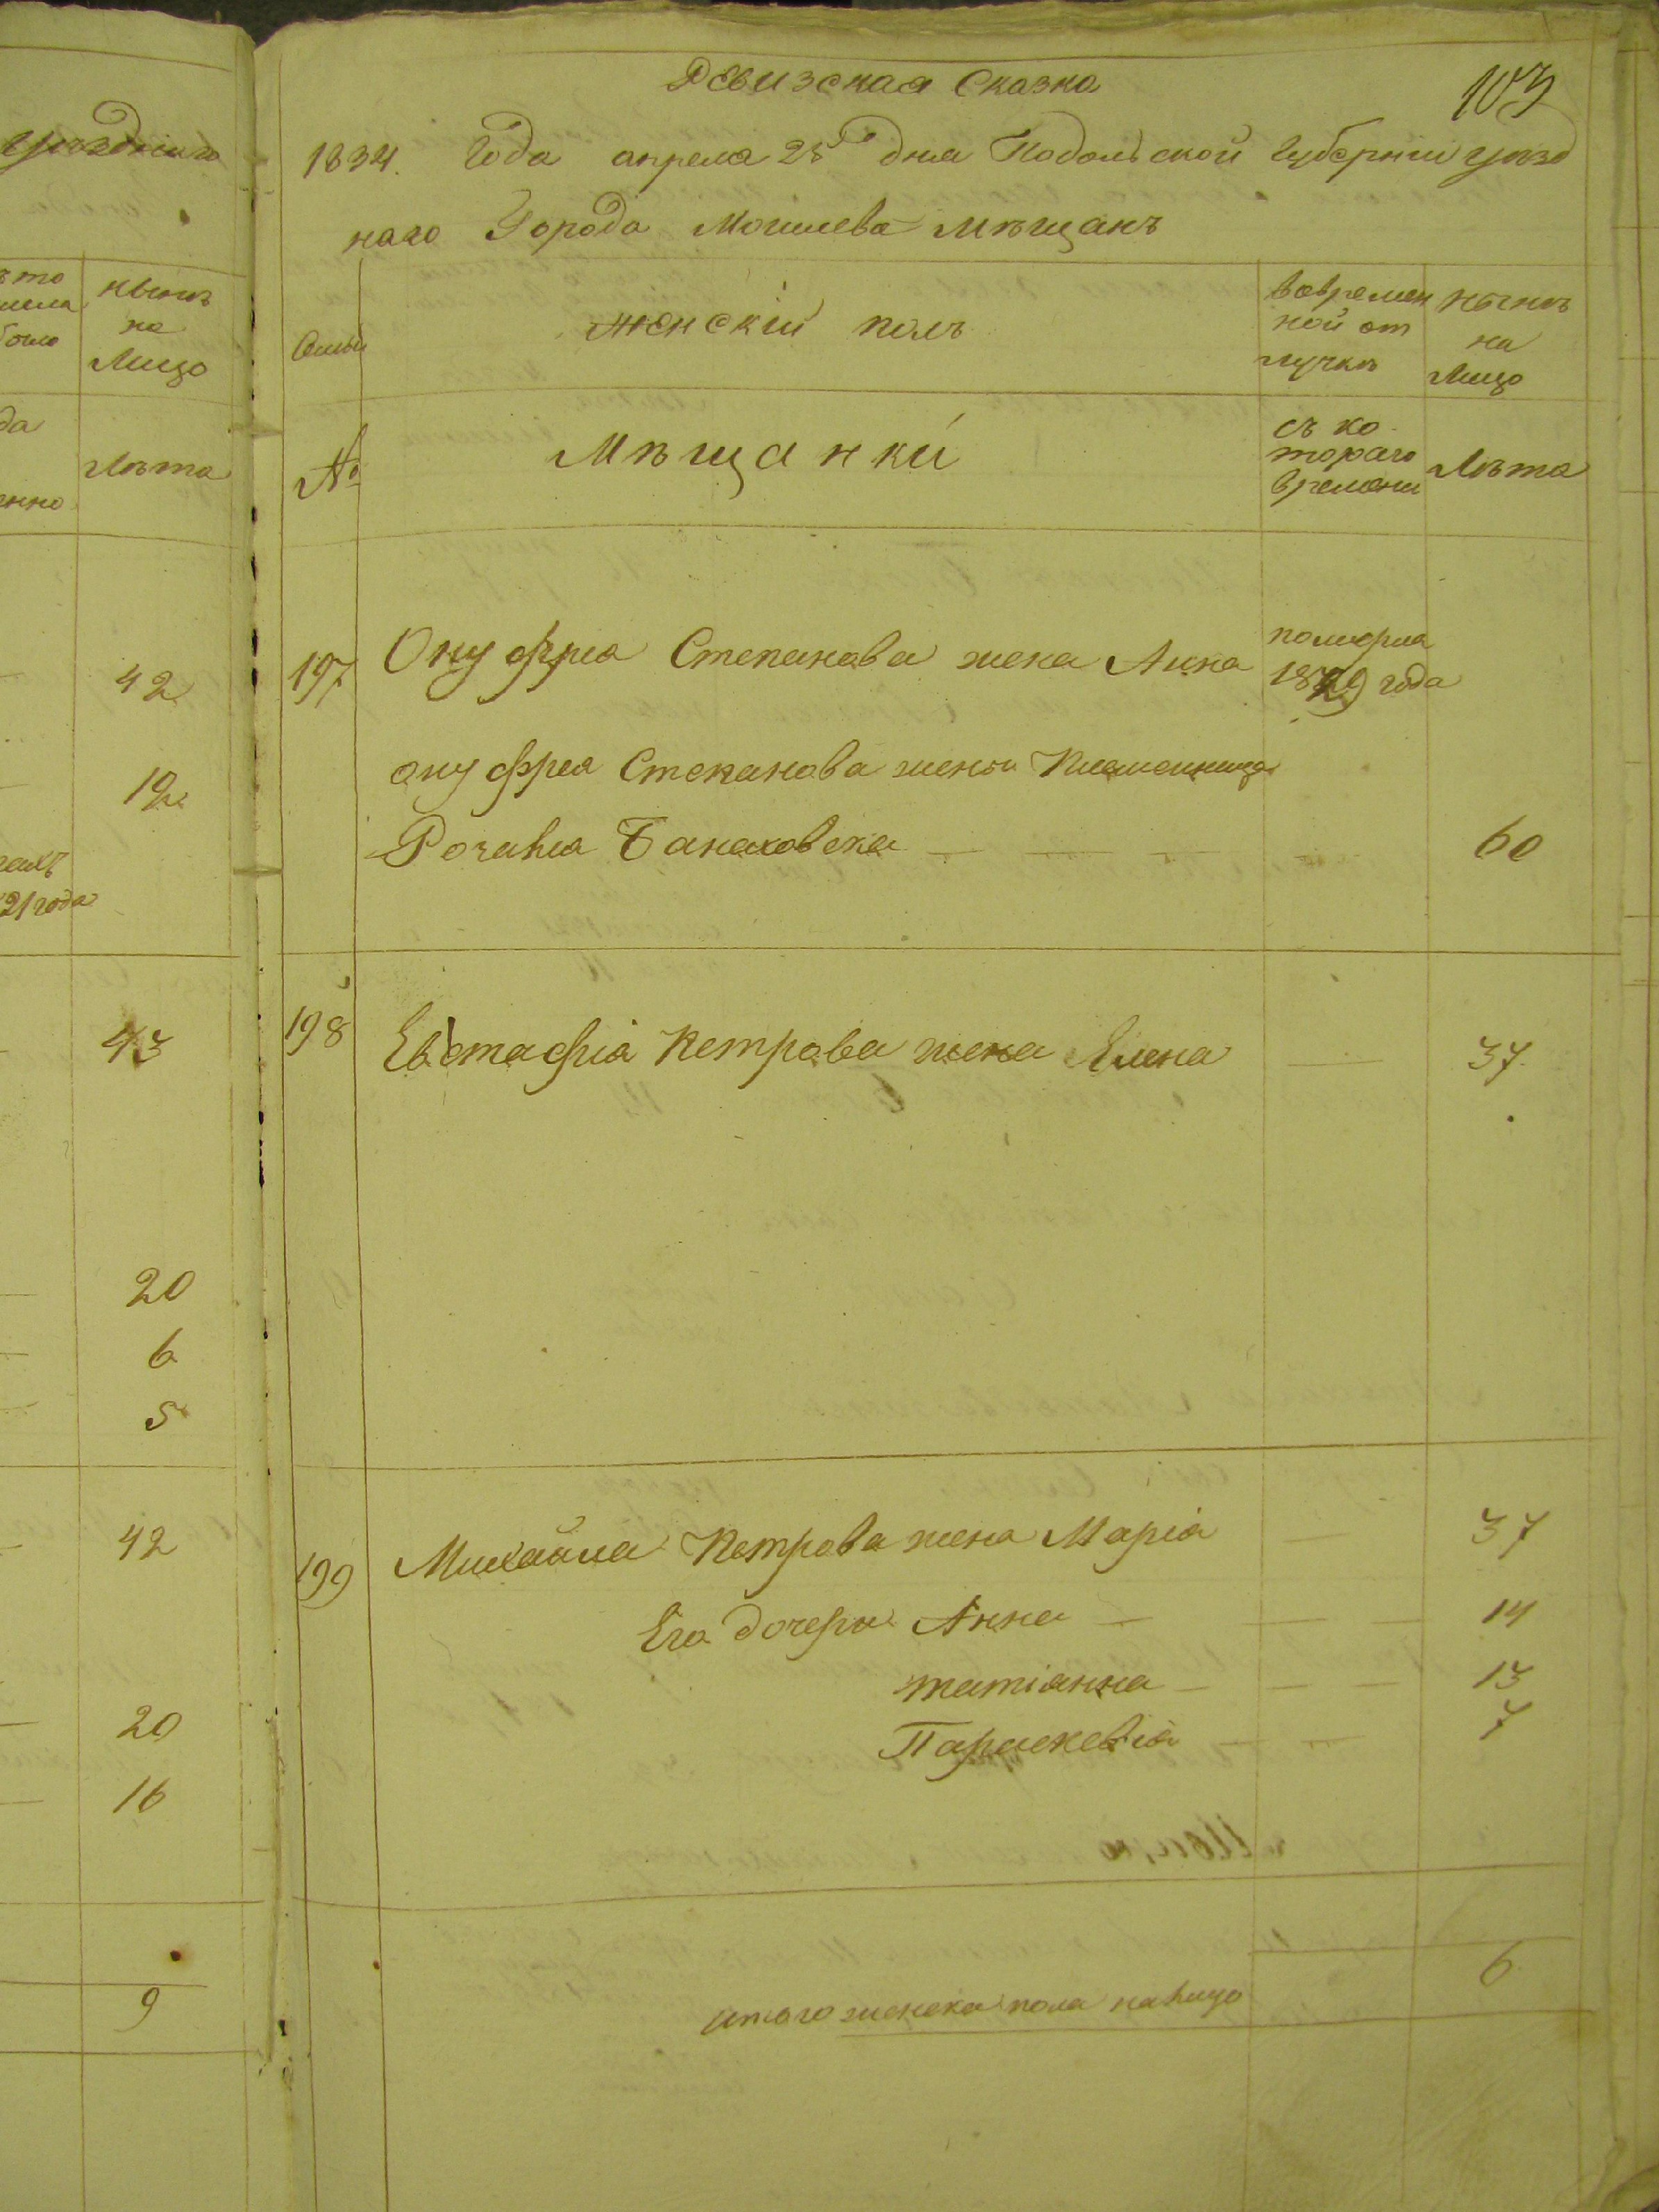 Ревизская Сказка
103
1834. Года апреля 25 дня Подольской Губернии уезд
наго Города Могилева мѣщанъ
Семьи
женскій полъ
вовремен
ной от
лучкѣ
нынѣ
на
Лицо
№
Мѣщанки
съ ко
тораго
времени
Лѣта
197
Онуфрея Степанова жена Анна
померла
1829 года
онуфрея Степанова жены Племенница
Банаховска
60
198
Евстафіа Петрова жена Елена
37
199
Михайла Петрова жена Маріа
37
Его дочери Анна
14
татіанна
13
Параскевіа
7
итого женска пола налицо
6
нынѣ
на
Лицо
Лѣта
42
12
21 года
43
20
6
5
42
20
16
9